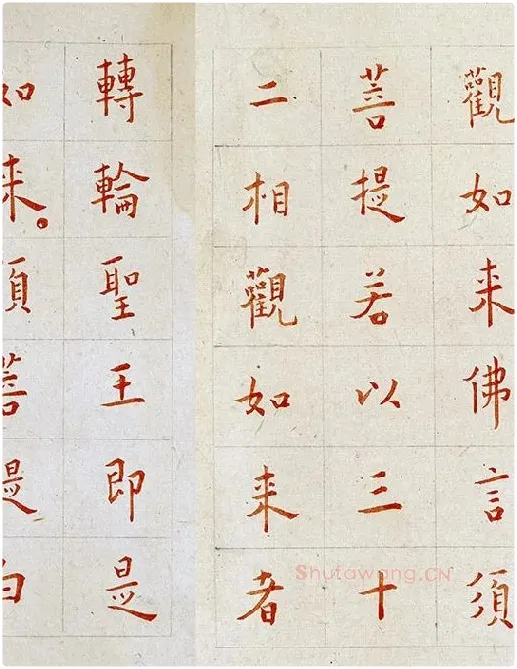 觀如来佛言須
菩提若以三十
二相觀如来者
轉輪聖王即是
如来。須菩提白
Shufawang.CN